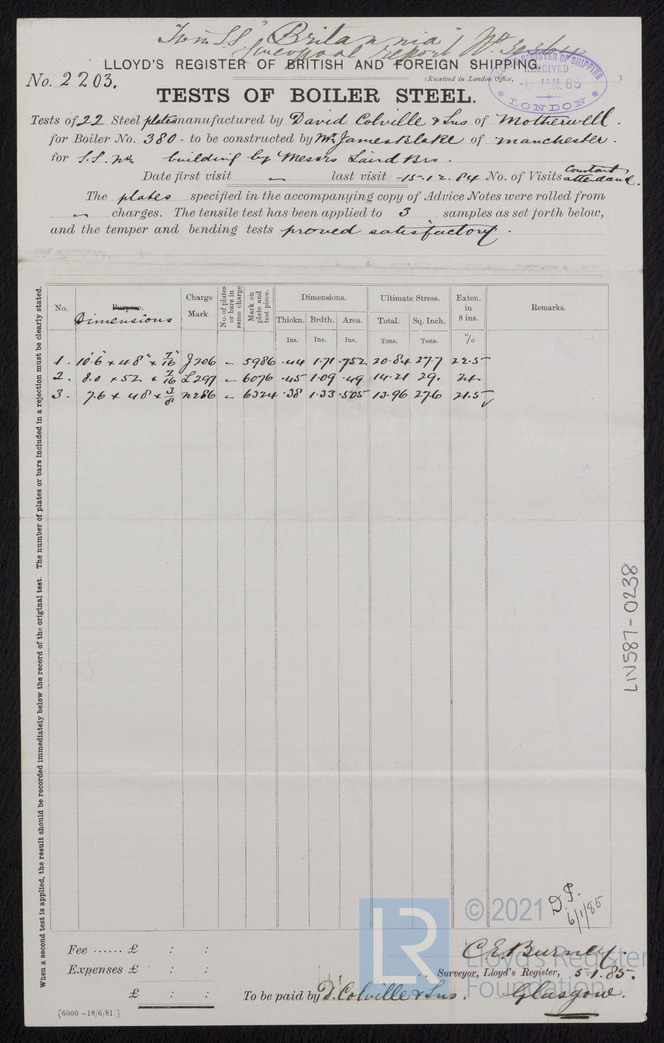 Twin S.S. "Britannia"
Liverpool report
LLOYD'S REGISTER OF BRITISH AND FOREIGN SHIPPING.
No. 2203.
(Received in London Office,
LLOYD'S REGISTER OF SHIPPING
RECEIVED
6 JAN. 85
LONDON
TESTS OF BOILER STEEL.
Tests of 22 Steel plates manufactured by David Colville & Sns of Motherwell.
for Boiler No. 380 to be constructed by Mr James Blake of Manchester.
for S.S. No. building by Messrs Laird Brs.
Date first visit " last visit 15.12.84 No. of Visits Constant attendance.
The plates specified in the accompanying copy of Advice Notes were rolled from
" charges. The tensile test has been applied to 3 samples as set forth below,
and the temper and bending tests proved satisfactory.
No. Purpose. Dimensions Charge Mark No. of plates or bars in same charge Mark on plate and test piece. Dimensions. Ultimate Stress. Exten. in 8 ins. Remarks.
Thickn. Brdth. Area. Total. Sq. Inch.
Ins. Ins. Ins. Tons. Tons. %
1. 10.6 × 48 × 7/16 J206 " 5986 .44 1.71 .752 20.84 27.7 22.5
2. 8.0 × 52 × 7/16 L297 " 6076 .45 1.09 .49 14.21 29. 24.
3. 7.6 × 48 × 3/8 N286 " 6324 .38 1.33 .505 13.96 27.6 21.5
When a second test is applied, the result should be recorded immediately below the record of the original test. The number of plates or bars included in a rejection must be clearly stated.
LNS87-0238
D.F.
6/1/85
© 2021
LR
Lloyd's Register
Foundation
Fee ...... £ : :
Expenses £ : :
£ : :
C.E. Burney.
Surveyor, Lloyd's Register, 5.1.85.
To be paid by D. Colville & Sns. Glasgow.
[6000—18/6/81]